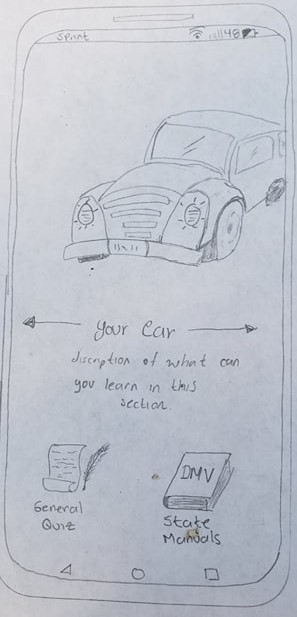 Sprint
48
Your Car
discription of what can
you learn in this
section.
General
Quiz
DMV
State
Manuals